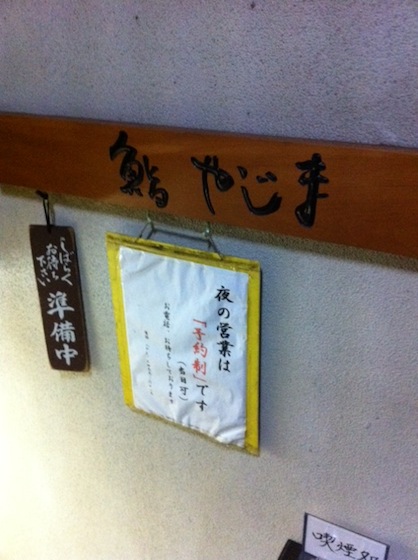 鮨 やじま
しばらく
お待ち
下さい
準備中
夜の営業は
「予約制」です
(当日可)
お電話、お待ちしております
喫煙処